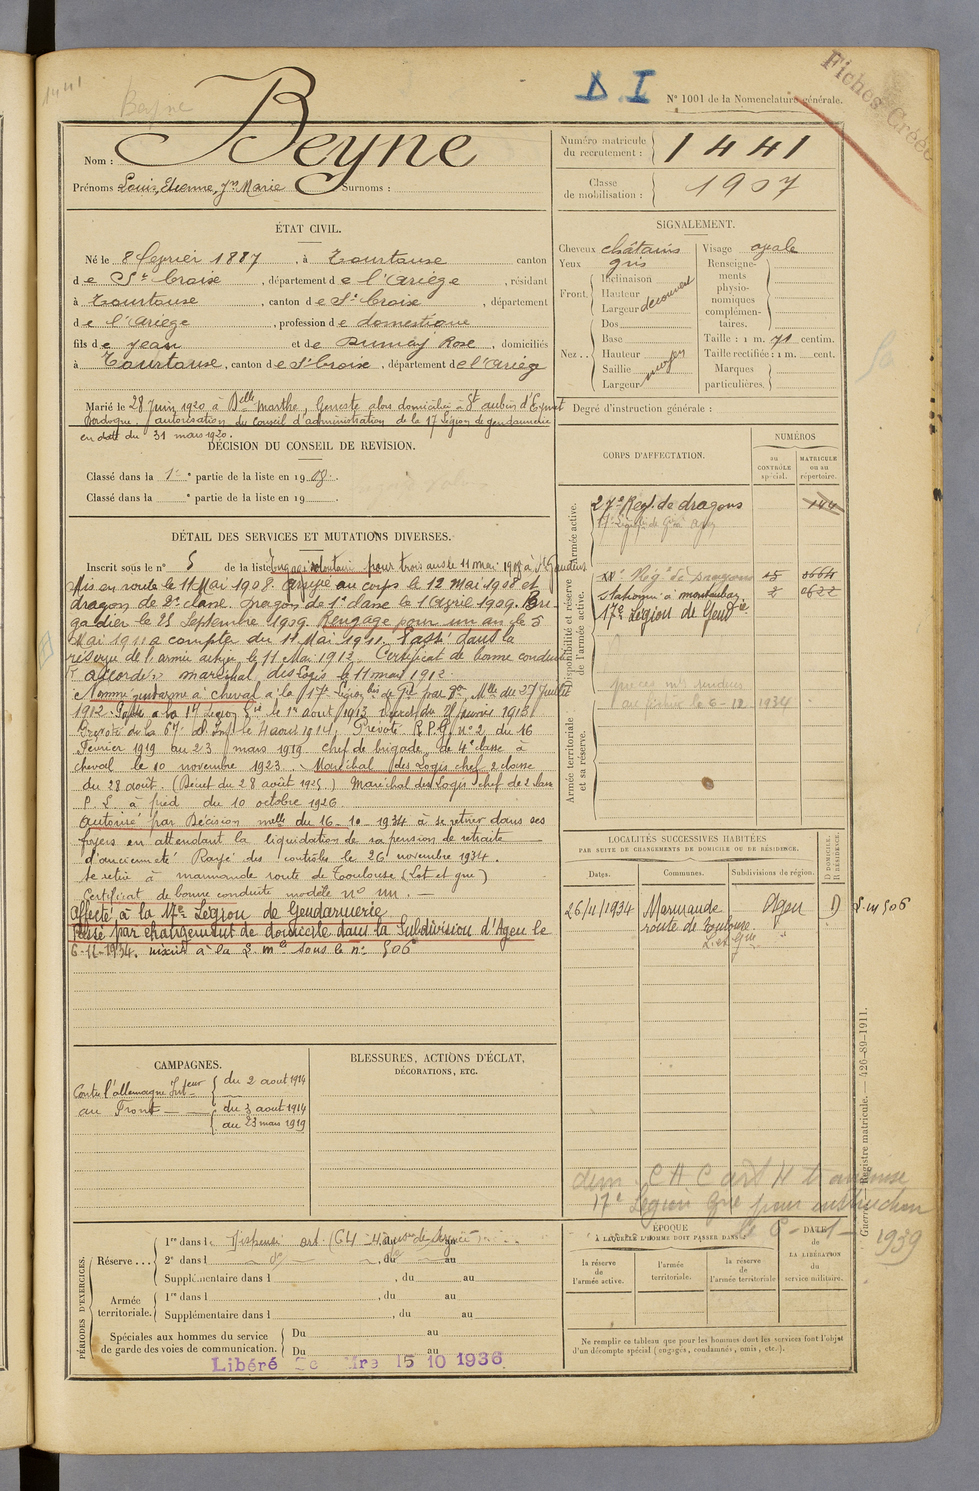 1441
Beyne
D. I
N° 1001 de la Nomenclature générale.
Fiches Créée
Nom : Beyne
Prénoms Louis, Etienne, Jn Marie Surnoms :
Numéro matricule du recrutement : 1441
Classe de mobilisation : 1907
ÉTAT CIVIL.
Né le 8 février 1887, à Tourtouse canton
de Ste Croix, département de l'Ariège, résidant
à Tourtouse, canton de Ste Croix, département
de l'Ariège, profession de domestique
fils de Jean et de Dumay Rose, domiciliés
à Tourtouse, canton de Ste Croix, département de l'Ariège
Marié le 28 Juin 1920 à Delle Marthe, Gerreste alors domiciliée à St Aubin d'Eymet
Dordogne. autorisation du conseil d'administration de la 17 Légion de gendarmerie
en date du 31 mars 1920.
SIGNALEMENT.
Cheveux châtains
Yeux gris
Front. Inclinaison
Hauteur
Largeur découvert
Nez .. Dos
Base
Hauteur moyen
Saillie
Largeur
Visage ovale
Renseignements physionomiques complémentaires.
Taille : 1 m. 71 centim.
Taille rectifiée : 1 m. cent.
Marques particulières.
Degré d'instruction générale :
DÉCISION DU CONSEIL DE REVISION.
Classé dans la 1e partie de la liste en 1908.
Classé dans la e partie de la liste en 19
DÉTAIL DES SERVICES ET MUTATIONS DIVERSES.
Inscrit sous le n° 5 de la liste Engagé volontaire pour trois ans le 11 mai 1908 à St Gaudens
Mis en route le 11 Mai 1908. Arrivé au corps le 12 Mai 1908 et
dragon de 2e classe. Dragon de 1e classe le 1 Avril 1909. Bri-
gadier le 25 Septembre 1909. Rengagé pour un an le 5
Mai 1911 à compter du 11 Mai 1911. Passé dans la
réserve de l'armée active le 11 Mai 1912. Certificat de bonne conduite
accordé. maréchal des Logis le 11 mai 1912
Nommé gendarme à cheval à la 17e Légion de Gie par Don Mlle du 27 Juillet
1912. Passé à la 17 Légion Gie le 1er août 1913
le 4 août 1914. Prévôté R.P.G. n° 2 du 16
Février 1919 au 23 mars 1919. Chef de brigade de 4e classe à
cheval le 10 novembre 1923. Maréchal des Logis chef 2 classe
du 28 août. (Décret du 28 août 1925.) Maréchal des Logis chef de 2 classe
P. L. à pied du 10 octobre 1926
Autorisé par Décision mlle du 16-10-1934 à se retirer dans ses
foyers en attendant la liquidation de sa pension de retraite
d'ancienneté Rayé des contrôles le 26 novembre 1934.
Se retire à marmande route de Toulouse (Lot et gne)
Certificat de bonne conduite modèle n°
Affecté à la 17e Légion de Gendarmerie
Passé par changement de domicile dans la Subdivision d'Agen le
6-11-1934. inscrit à la sous le n° 506
CORPS D'AFFECTATION.
NUMÉROS
au CONTRÔLE spécial.
MATRICULE ou au répertoire.
Armée active.
27e Regt de dragons 144
17e Légion de Gie à Agen
Disponibilité et réserve de l'armée active.
Rége de Dragons
stationné à montauban
17e Légion de Gendie
Armée territoriale et sa réserve.
le 6-12-1934
LOCALITÉS SUCCESSIVES HABITÉES
PAR SUITE DE CHANGEMENTS DE DOMICILE OU DE RÉSIDENCE.
Dates. Communes. Subdivisions de région. D DOMICILE. R RÉSIDENCE.
26/11/1934 Marmande Agen D
route de Toulouse
L. et Gne
CAMPAGNES.
Contre l'allemagne Inteur du 2 aout 1914
au Front du 3 aout 1914
au 23 mars 1919
BLESSURES, ACTIONS D'ÉCLAT,
DÉCORATIONS, ETC.
Guerre. — Registre matricule. — 426-89-1911.
17e Légion Gie pour instruction
le 6-1-1939
PÉRIODES D'EXERCICES.
Réserve ... 1re dans l
2e dans l , du au
Supplémentaire dans l , du au
Armée territoriale. 1re dans l , du au
Supplémentaire dans l , du au
Spéciales aux hommes du service de garde des voies de communication. Du au
Du au
Libéré 15 10 1936
ÉPOQUE
À LAQUELLE L'HOMME DOIT PASSER DANS
la réserve de l'armée active.
l'armée territoriale.
la réserve de l'armée territoriale
DATE de LA LIBÉRATION du service militaire.
Ne remplir ce tableau que pour les hommes dont les services font l'objet
d'un décompte spécial (engagés, condamnés, omis, etc.).